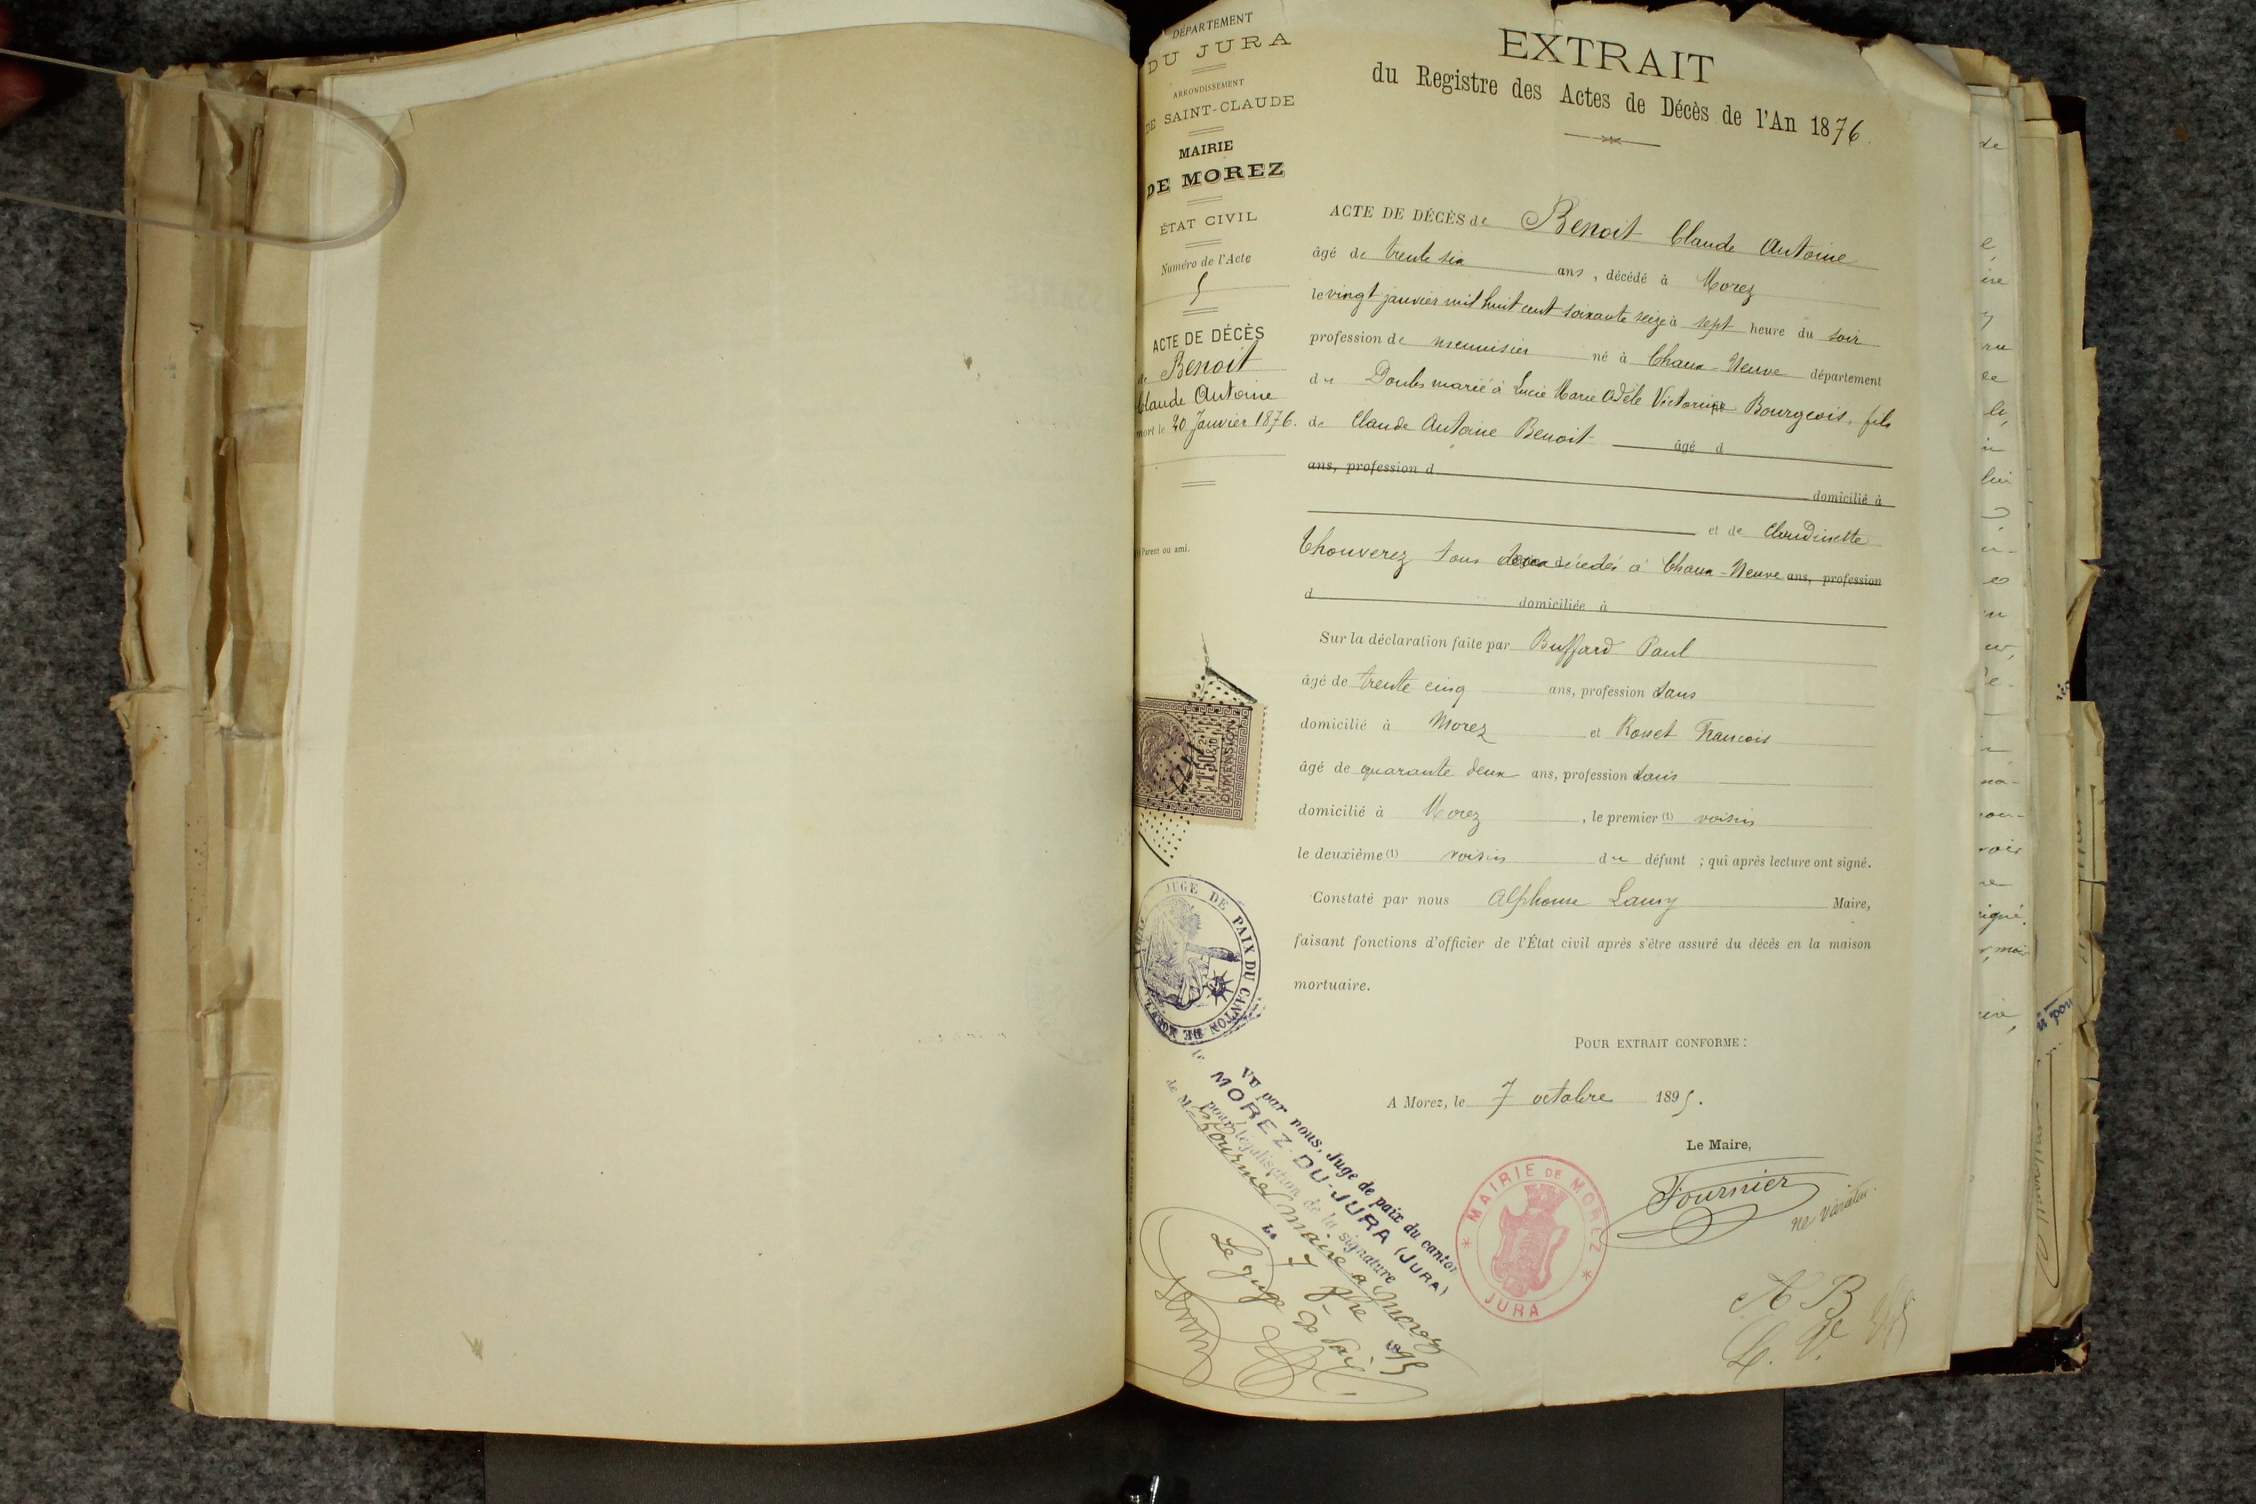 DÉPARTEMENT
DU JURA
ARRONDISSEMENT
DE SAINT-CLAUDE
MAIRIE
DE MOREZ
ÉTAT CIVIL
Numéro de l'Acte
5
ACTE DE DÉCÈS
de Benoit
Claude Antoine
mort le 20 Janvier 1876.
Parent ou ami.
EXTRAIT
du Registre des Actes de Décès de l'An 1876.
ACTE DE DÉCÈS de Benoit Claude Antoine
âgé de trente six ans, décédé à Morez
le vingt janvier mil huit cent soixante seize à sept heure du soir
profession de menuisier né à Chaux-Neuve département
du Doubs marié à Lucie Marie Adèle Victorine Bourgeois, fils
de Claude Antoine Benoit âgé d
ans, profession d
domicilié à
et de Claudinette
Thouverez tous décédés à Chaux-Neuve ans, profession
d domiciliée à
Sur la déclaration faite par Buffard Paul
âgé de trente cinq ans, profession sans
domicilié à Morez et Rouet Francois
âgé de quarante deux ans, profession sans
domicilié à Morez, le premier (1) voisin
le deuxième (1) voisin du défunt ; qui après lecture ont signé.
Constaté par nous Alphonse Lamy Maire,
faisant fonctions d'officier de l'État civil après s'être assuré du décès en la maison
mortuaire.
POUR EXTRAIT CONFORME :
A Morez, le 7 octobre 1895.
Le Maire,
Fournier
ne varietur.
MAIRIE DE MOREZ
JURA
DIMENSION
JUGE DE PAIX DU CANTON DE MOREZ
Vu par nous, Juge de paix du canton
de MOREZ-DU-JURA (JURA)
pour légalisation de la signature
de M. Fournier maire a Morez
Le 7 8bre 1895
Le juge de Paix
A B
L. V.